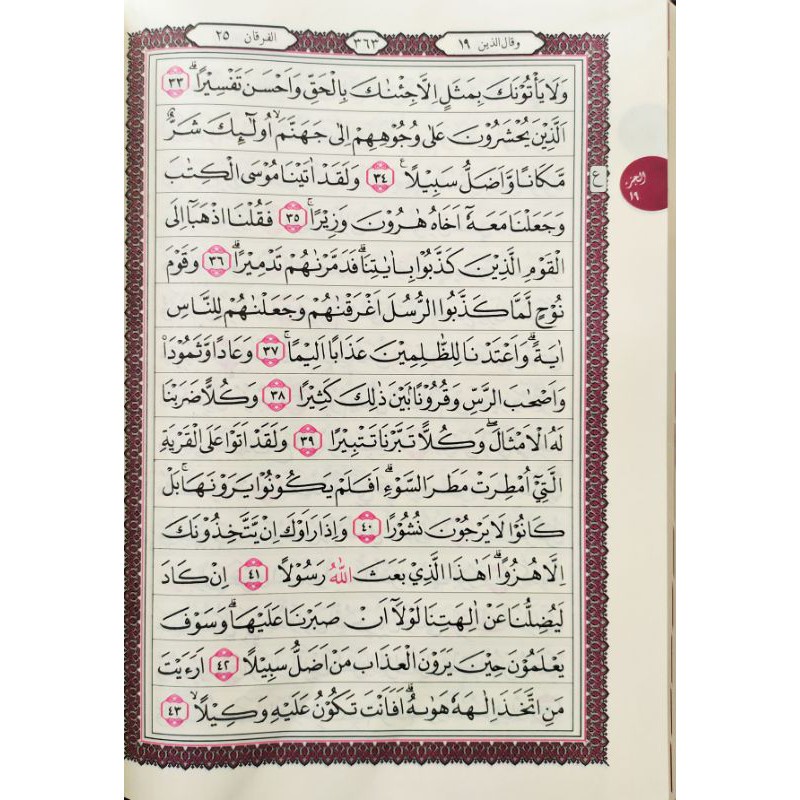 وقال الذين ١٩
٣٦٣
الفرقان ٢٥
وَلَا يَأْتُوْنَكَ بِمَثَلٍ اِلَّا جِئْنٰكَ بِالْحَقِّ وَاَحْسَنَ تَفْسِيْرًاۗ ٣٣
اَلَّذِيْنَ يُحْشَرُوْنَ عَلٰى وُجُوْهِهِمْ اِلٰى جَهَنَّمَۙ اُولٰۤىِٕكَ شَرٌّ
مَّكَانًا وَّاَضَلُّ سَبِيْلًا ࣖ ٣٤ وَلَقَدْ اٰتَيْنَا مُوْسَى الْكِتٰبَ
وَجَعَلْنَا مَعَهٗٓ اَخَاهُ هٰرُوْنَ وَزِيْرًاۚ ٣٥ فَقُلْنَا اذْهَبَآ اِلَى
الْقَوْمِ الَّذِيْنَ كَذَّبُوْا بِاٰيٰتِنَاۗ فَدَمَّرْنٰهُمْ تَدْمِيْرًاۗ ٣٦ وَقَوْمَ
نُوْحٍ لَّمَّا كَذَّبُوا الرُّسُلَ اَغْرَقْنٰهُمْ وَجَعَلْنٰهُمْ لِلنَّاسِ
اٰيَةًۗ وَاَعْتَدْنَا لِلظّٰلِمِيْنَ عَذَابًا اَلِيْمًاۚ ٣٧ وَعَادًا وَّثَمُوْدَا۟
وَاَصْحٰبَ الرَّسِّ وَقُرُوْنًاۢ بَيْنَ ذٰلِكَ كَثِيْرًا ٣٨ وَكُلًّا ضَرَبْنَا
لَهُ الْاَمْثَالَۖ وَكُلًّا تَبَّرْنَا تَتْبِيْرًا ٣٩ وَلَقَدْ اَتَوْا عَلَى الْقَرْيَةِ
الَّتِيْٓ اُمْطِرَتْ مَطَرَ السَّوْءِۗ اَفَلَمْ يَكُوْنُوْا يَرَوْنَهَاۚ بَلْ
كَانُوْا لَا يَرْجُوْنَ نُشُوْرًا ٤٠ وَاِذَا رَاَوْكَ اِنْ يَّتَّخِذُوْنَكَ
اِلَّا هُزُوًاۗ اَهٰذَا الَّذِيْ بَعَثَ اللّٰهُ رَسُوْلًا ٤١ اِنْ كَادَ
لَيُضِلُّنَا عَنْ اٰلِهَتِنَا لَوْلَآ اَنْ صَبَرْنَا عَلَيْهَاۗ وَسَوْفَ
يَعْلَمُوْنَ حِيْنَ يَرَوْنَ الْعَذَابَ مَنْ اَضَلُّ سَبِيْلًا ٤٢ اَرَءَيْتَ
مَنِ اتَّخَذَ اِلٰهَهٗ هَوٰىهُۗ اَفَاَنْتَ تَكُوْنُ عَلَيْهِ وَكِيْلًاۙ ٤٣
ع
الجزء
١٩